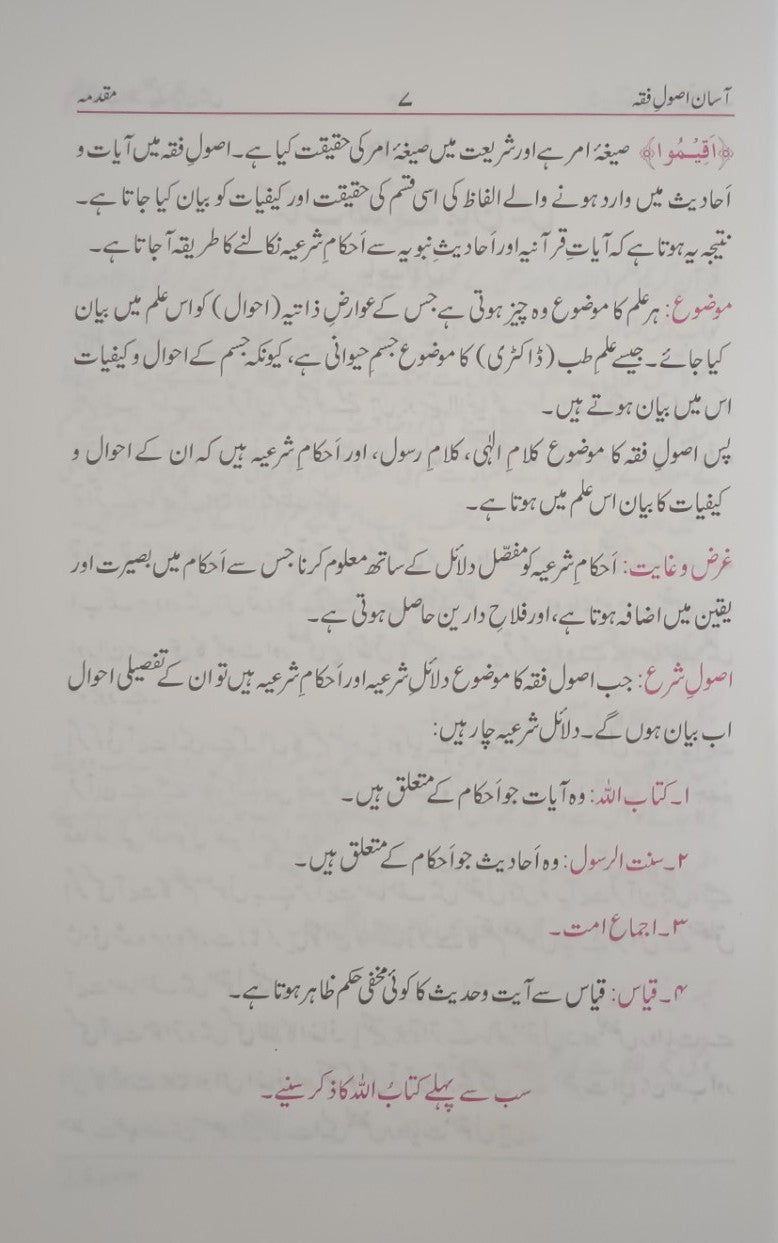 آسان اصولِ فقہ ۷ مقدمہ
﴿اَقِيْـمُوا﴾ صیغۂ امر ہے اور شریعت میں صیغۂ امر کی حقیقت کیا ہے۔ اصولِ فقہ میں آیات و
اَحادیث میں وارد ہونے والے الفاظ کی اسی قسم کی حقیقت اور کیفیات کو بیان کیا جاتا ہے۔
نتیجہ یہ ہوتا ہے کہ آیاتِ قرآنیہ اور اَحادیثِ نبویہ سے اَحکامِ شرعیہ نکالنے کا طریقہ آجاتا ہے۔
موضوع: ہر علم کا موضوع وہ چیز ہوتی ہے جس کے عوارضِ ذاتیہ (احوال) کو اس علم میں بیان
کیا جائے۔ جیسے علمِ طب (ڈاکٹری) کا موضوع جسمِ حیوانی ہے، کیونکہ جسم کے احوال و کیفیات
اس میں بیان ہوتے ہیں۔
پس اصولِ فقہ کا موضوع کلامِ الٰہی، کلامِ رسول، اور اَحکامِ شرعیہ ہیں کہ ان کے احوال و
کیفیات کا بیان اس علم میں ہوتا ہے۔
غرض و غایت: اَحکامِ شرعیہ کو مفصّل دلائل کے ساتھ معلوم کرنا جس سے اَحکام میں بصیرت اور
یقین میں اضافہ ہوتا ہے، اور فلاحِ دارین حاصل ہوتی ہے۔
اصولِ شرع: جب اصول فقہ کا موضوع دلائلِ شرعیہ اور اَحکامِ شرعیہ ہیں تو ان کے تفصیلی احوال
اب بیان ہوں گے۔ دلائل شرعیہ چار ہیں:
۱۔ کتاب اللہ: وہ آیات جو اَحکام کے متعلق ہیں۔
۲۔ سنت الرسول: وہ اَحادیث جو اَحکام کے متعلق ہیں۔
۳۔ اجماع امت۔
۴۔ قیاس: قیاس سے آیت و حدیث کا کوئی مخفی حکم ظاہر ہوتا ہے۔
سب سے پہلے کتابُ اللہ کا ذکر سنیے۔